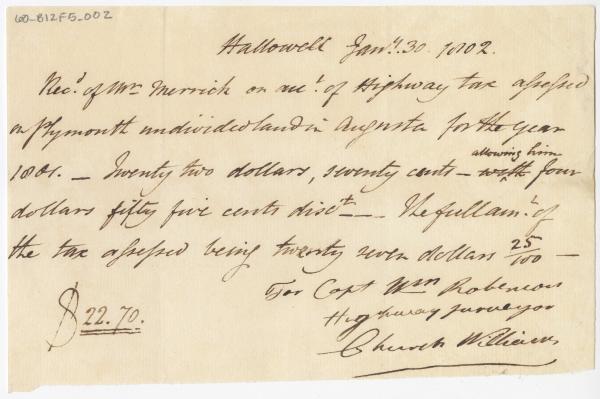 60-B12F5-002
Hallowell Jany. 30. 1802.
Recd. of Mr Merrick on acct. of Highway tax assessed
on Plymouth undivided land in Augusta for the year
1801. — Twenty two dollars, seventy cents — with allowing him four
dollars fifty five cents disct — — The full amt. of
the tax assessed being twenty seven dollars 25/100 —
For Capt Wm Robinson
Highway surveyor
$ 22.70.
Church Williams